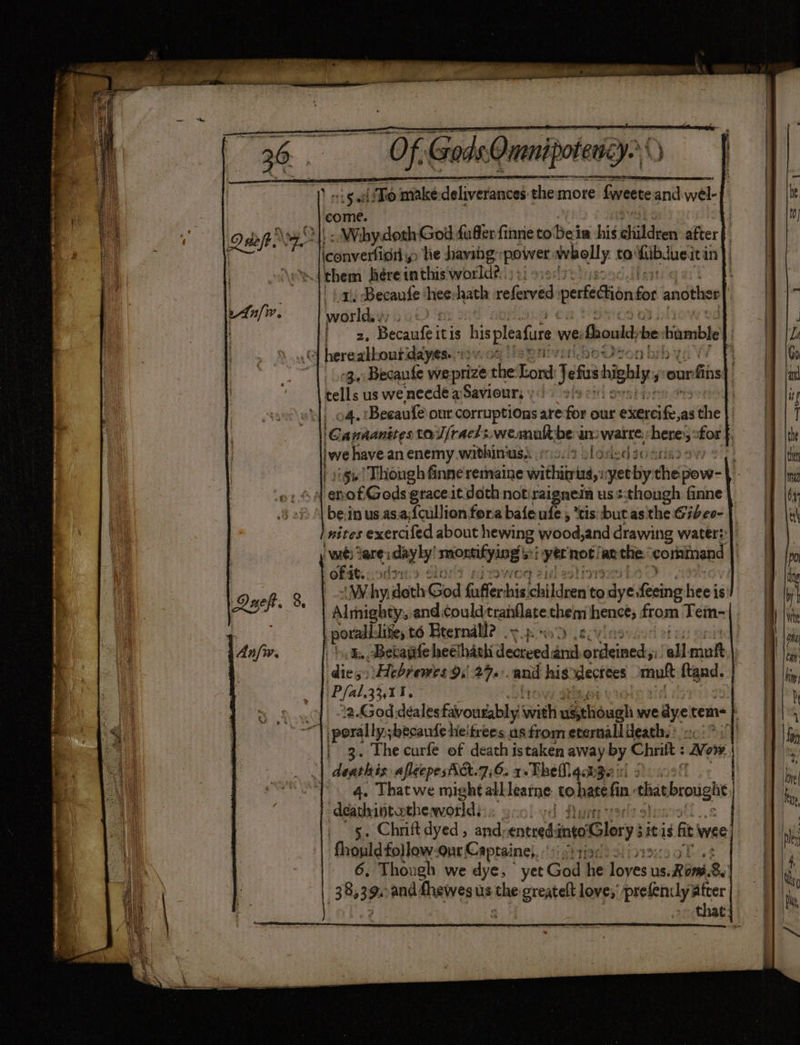 36 Of Gods Omnipotency.
5. To make deliverances the more sweete and wel-
come.
Quest. 7. Why doth God suffer sinne to be in his children after
conversion, he having power wholly to subdue it in
them here in this world?
Answ. 1. Because hee hath reserved perfection for another
world.
2. Because it is his pleasure we should be humble
here all our dayes.
3. Because we prize the Lord Jesus highly; our sins
tells us we neede a Saviour.
4. Because our corruptions are for our exercise, as the
Canaanites to Israel: we must be in warre here, for
we have an enemy within us.
5. Though sinne remaine within us, yet by the pow-
er of Gods grace it doth not raigne in us: though sinne
be in us as a scullion for a base use, 'tis but as the Gibeo-
nites exercised about hewing wood, and drawing water:
we are dayly mortifying: yet not at the command
of it.
Quest. 8. Why doth God suffer his children to dye seeing hee is
Almighty, and could translate them hence, from Tem-
porall life, to Eternall?
Answ. 1. Because hee hath decreed and ordeined, all must
die, Hebrewes 9. 27. and his decrees must stand.
Psal. 33, 11.
2. God deales favourably with us, though we dye tem-
porally; because he frees us from eternall death.
3. The curse of death is taken away by Christ: Now
death is asleepe, Act. 7, 6. 1. Thess. 4.
4. That we might all learne to hate sin that brought
death into the world.
5. Christ dyed, and entred into Glory: it is fit wee
should follow our Captaine.
6. Though we dye, yet God he loves us. Rom. 8.
38, 39. and shewes us the greatest love, presently after
that